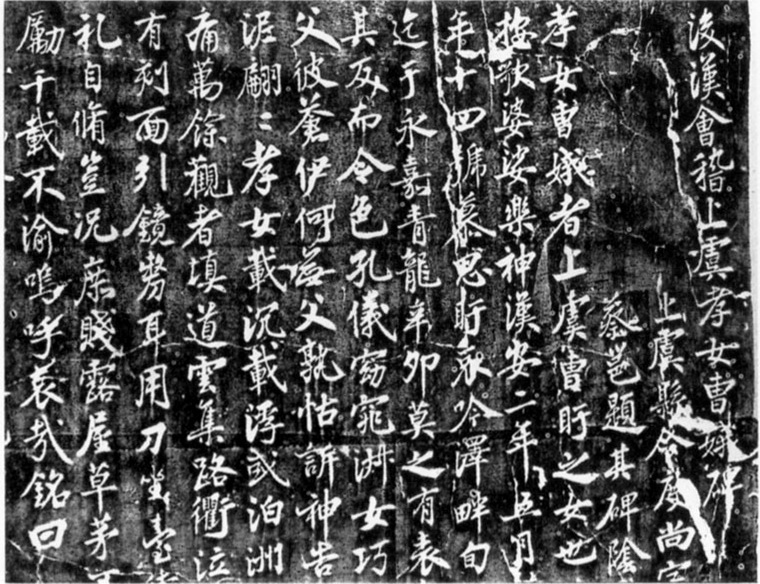 後漢會稽上虞孝女曹娥碑
上虞縣令度尚字
蔡邕題其碑陰
孝女曹娥者上虞曹盱之女也
按歌婆娑樂神漢安二年五月
年十四號慕思盱哀吟澤畔旬
迄于永嘉青龍辛卯莫之有表
其反而令色孔儀窈窕淑女巧
父彼蒼伊何無父孰怙訴神告
泥翩〻孝女載沉載浮或泊洲
痛萬餘觀者填道雲集路衢泣
有刻面引鏡剺耳用刀坐臺
礼自脩豈况庶賤露屋草茅不
勵千載不渝嗚呼哀哉銘曰